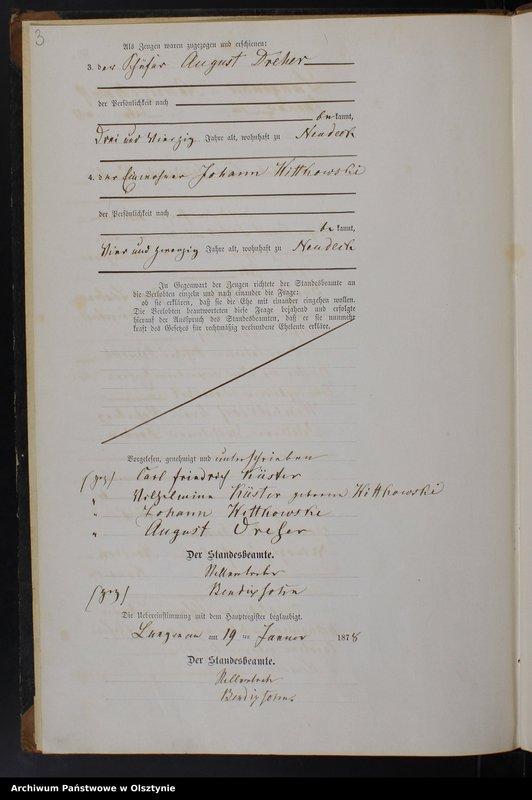 3
Als Zeugen waren zugezogen und erschienen:
3. der Schäfer August Dreher
der Persönlichkeit nach
be kannt,
Drei und Vierzig Jahre alt, wohnhaft zu Neudeck
4. der Einwohner Johann Kittkowski
der Persönlichkeit nach
be kannt,
Vier und zwanzig Jahre alt, wohnhaft zu Neudeck
In Gegenwart der Zeugen richtete der Standesbeamte an
die Verlobten einzeln und nach einander die Frage:
ob sie erklären, daß sie die Ehe mit einander eingehen wollen.
Die Verlobten beantworteten diese Frage bejahend und erfolgte
hierauf der Ausspruch des Standesbeamten, daß er sie nunmehr
kraft des Gesetzes für rechtmäßig verbundene Eheleute erkläre.
Vorgelesen, genehmigt und unterschrieben
(gez) Carl Friedrich Küster
" Wilhelmine Küster geborene Kittkowski
" Johann Kittkowski
" August Dreher
Der Standesbeamte.
(gez) Bendixsohn
Die Uebereinstimmung mit dem Hauptregister beglaubigt.
am 19 ten Januar 1878
Der Standesbeamte.
Bendixsohn
Archiwum Państwowe w Olsztynie